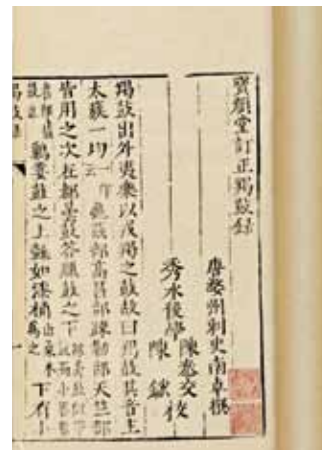 寶顏堂訂正羯鼓錄
唐婺州刺史南卓撰
秀水後學
陳
交
陳
校
羯鼓出外夷樂以戎羯之鼓故曰羯鼓其音主
太簇一均
龜茲部高昌部疎勒部天竺部
皆用之次在都曇鼓答臘鼓之下
鷄婁鼓之上
如漆桶
山桑木
爲之
下有小
羯鼓錄
一